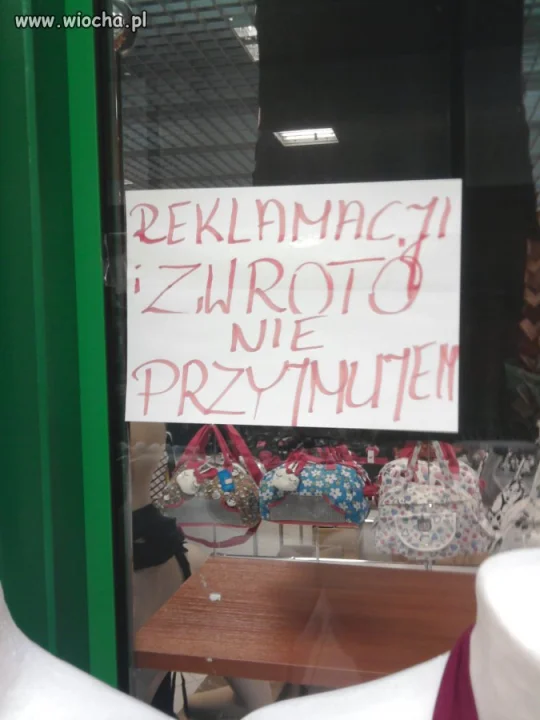 www.wiocha.pl
REKLAMACJI
i ZWROTÓ
NIE
PRZYJMUJEM